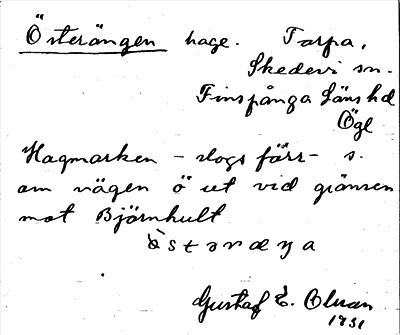 Österängen hage. Torpa,
Skedevi sn.
Finspånga Läns hd
Ögl
Hagmarken – slogs förr – s.
om vägen ö ut vid gränsen
mot Björnhult
Gustaf E.
1931